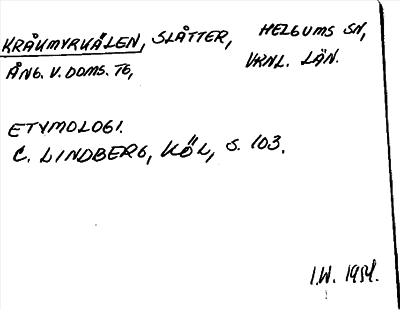 KRÅKMYRKÄLEN, SLÅTTER, HELGUMS SN,
ÅNG. V. DOMS. TG, VRNL. LÄN.
ETYMOLOGI.
C. LINDBERG, KÖL, S. 103.
I.W. 1954.